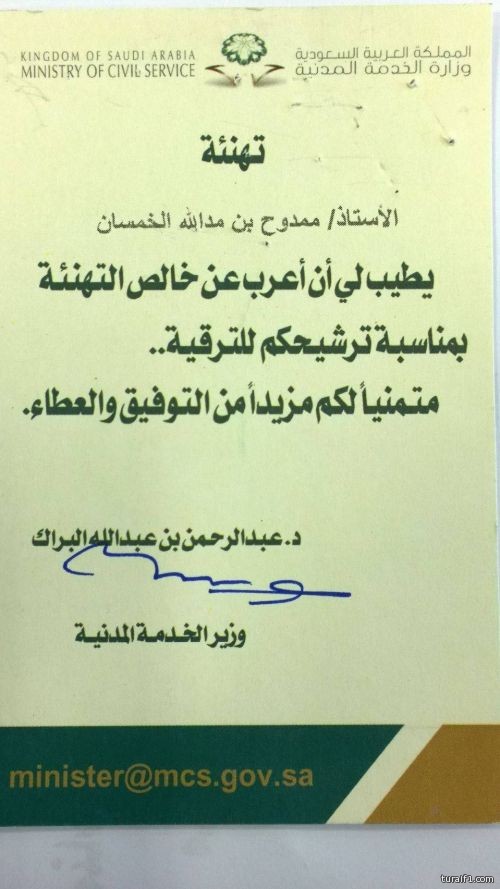 المملكة العربية السعودية
وزارة الخدمة المدنية
KINGDOM OF SAUDI ARABIA
MINISTRY OF CIVIL SERVICE
تهنئة
الأستاذ/ ممدوح بن مدالله الخمسان
يطيب لي أن أعرب عن خالص التهنئة
بمناسبة ترشيحكم للترقية..
متمنياً لكم مزيداً من التوفيق والعطاء.
د. عبدالرحمن بن عبدالله البراك
وزير الخدمة المدنية
minister@mcs.gov.sa
turaif1.com